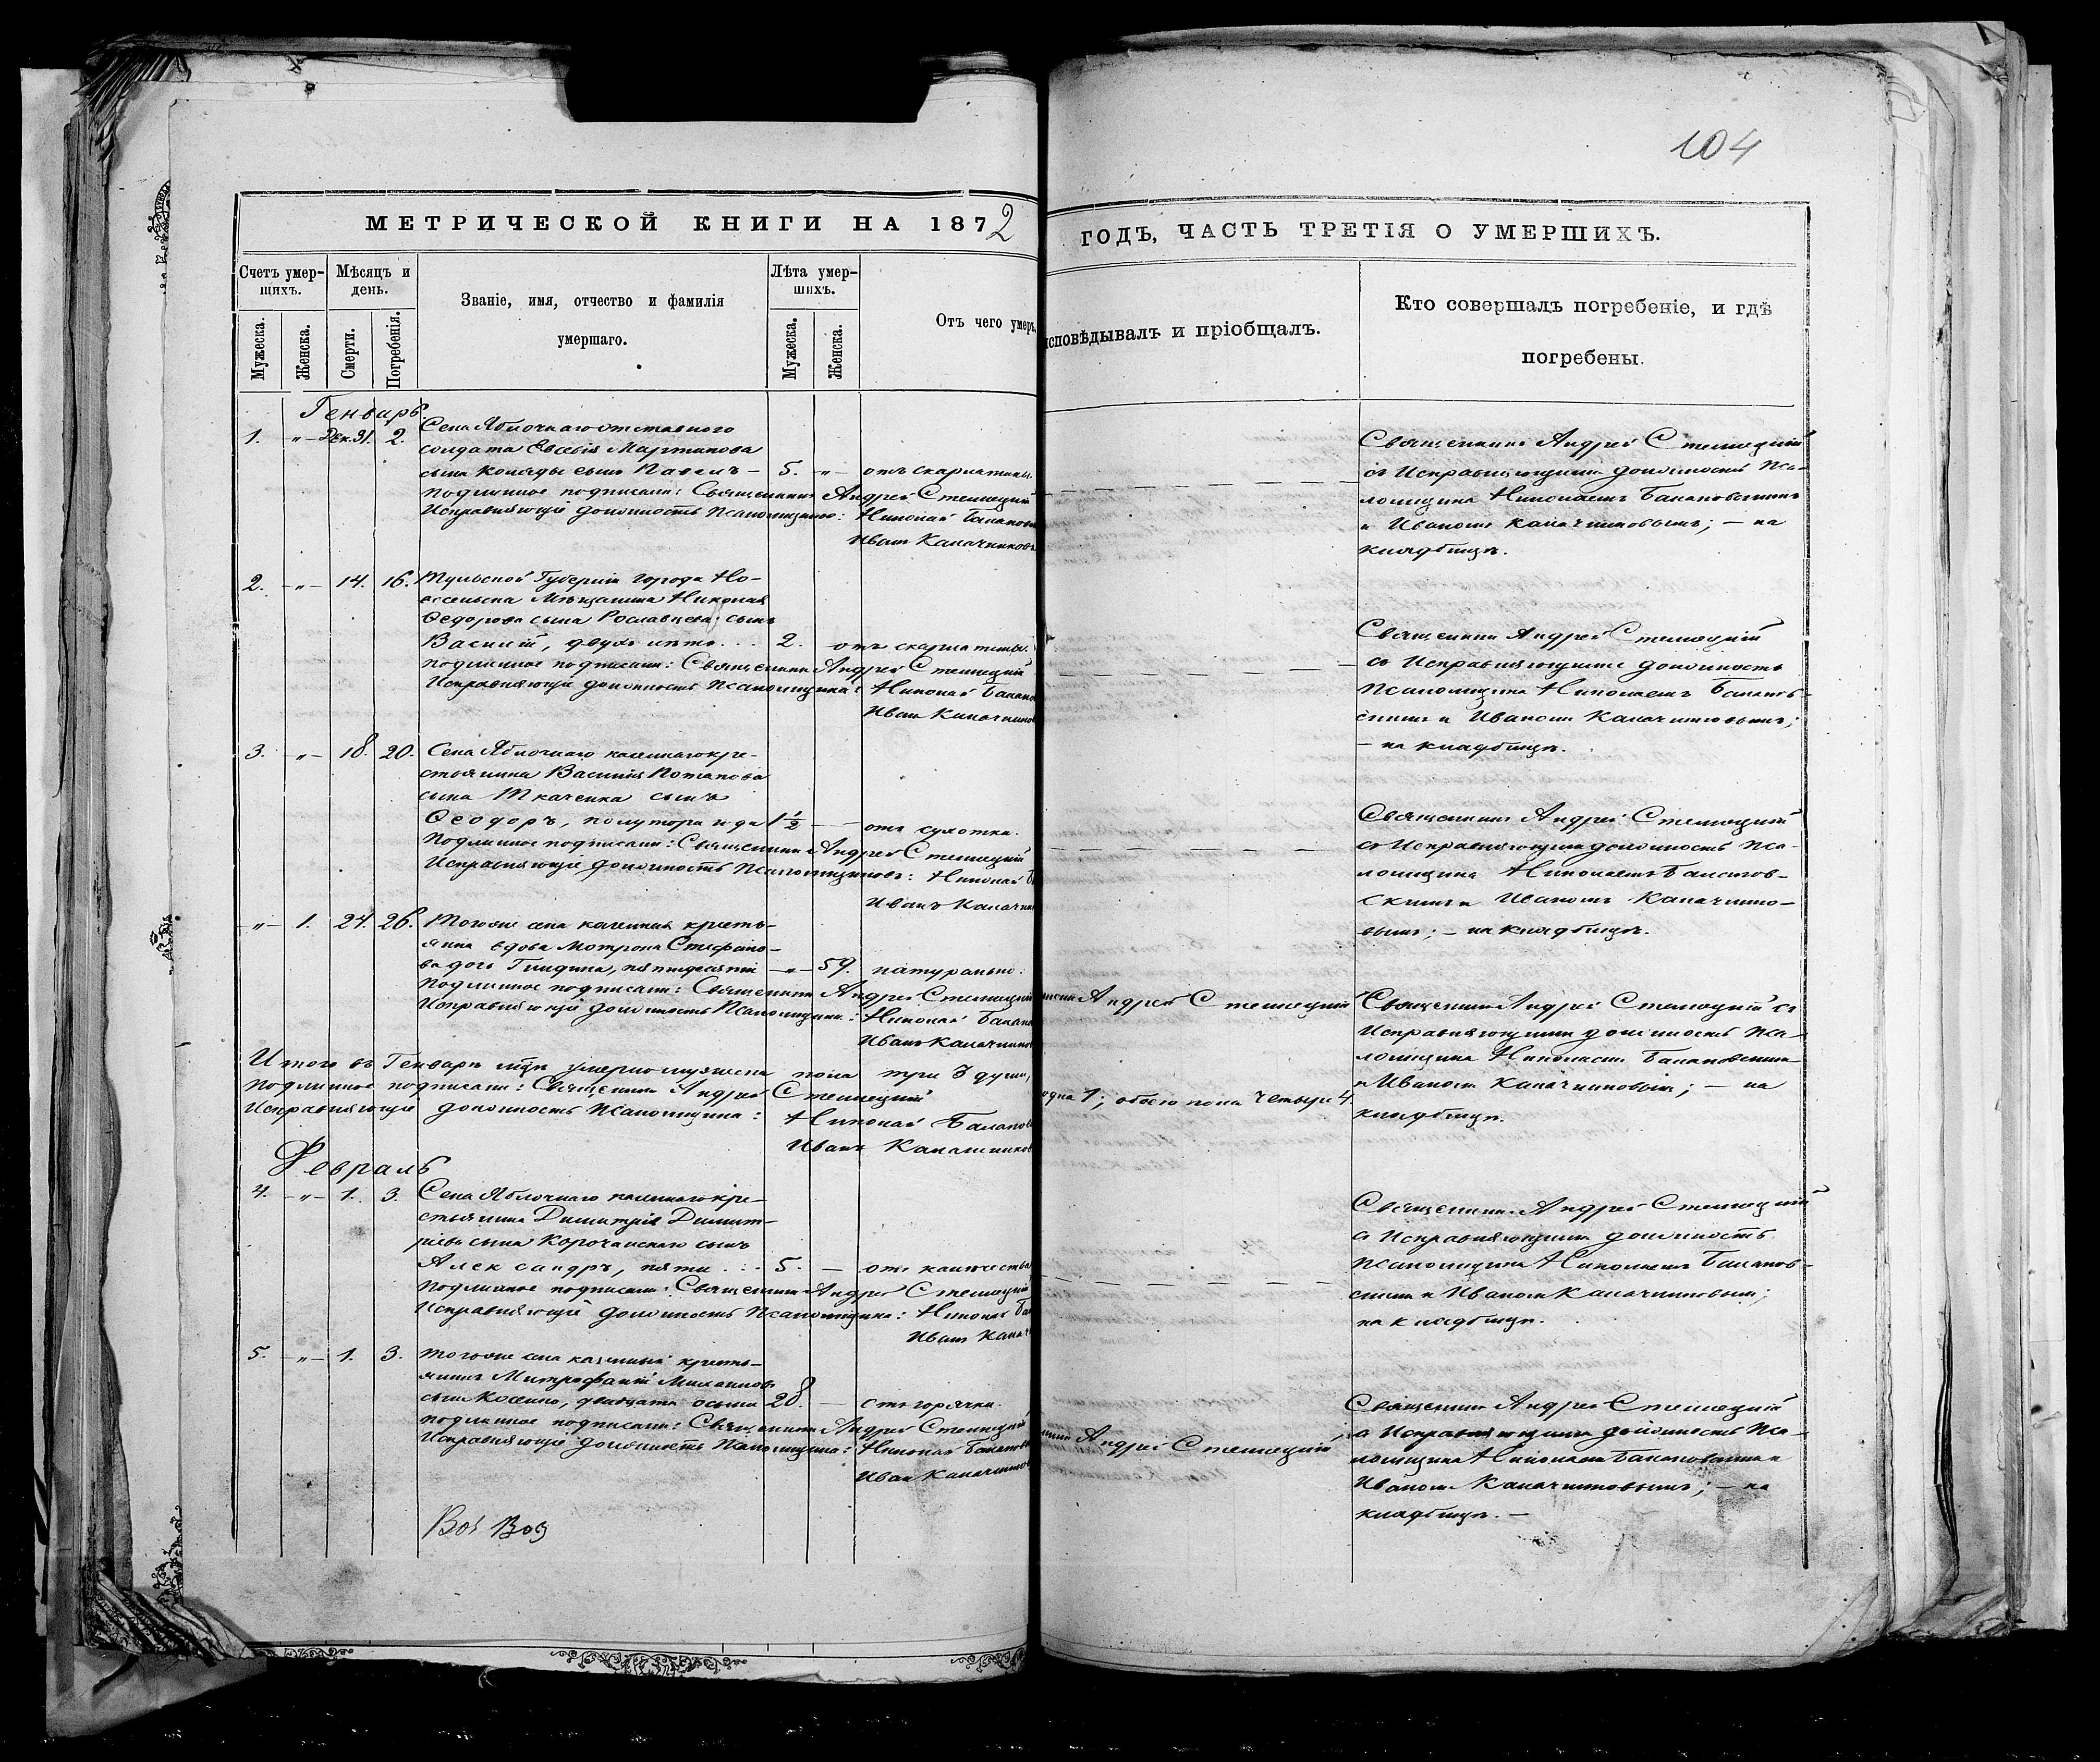 104
МЕТРИЧЕСКОЙ КНИГИ НА 1872
ГОДЪ, ЧАСТЬ ТРЕТІЯ О УМЕРШИХЪ.
Счетъ умер-
шихъ.
Мужеска.
Женска.
Мѣсяцъ и
день.
Смерти.
Погребенія.
Званіе, имя, отчество и фамилія
умершаго.
Лѣта умер-
шихъ.
Мужеска.
Женска.
Отъ чего умеръ.
исповѣдывалъ и пріобщалъ.
Кто совершалъ погребеніе, и гдѣ
погребены.
Генварь
1. „ Дек. 31. 2. Села Яблочнаго отставнаго
солдата Евсевія Мартинова
сына Коляды сынъ Павелъ – 5. „ отъ скарлатины.
Подлинное подписали: Священникъ Андрей Стешецкій
Исправляющіе должность Псаломщиковъ: Николай
Иванъ Калачниковъ
Священникъ Андрей Стешецкій
съ Исправляющими должность Пса-
ломщика Николаемъ Балановскимъ
и Иваномъ Калачниковымъ; – на
кладбищѣ.
2. „ 14. 16. Тульской Губерніи города Но-
восельска Мѣщанина Николая
Ѳедорова сына Рославцева сынъ
Василій, двухъ лѣтъ... 2. отъ скарлатины.
Подлинное подписали: Священникъ Андрей Стешецкій
Исправляющіе должность Псаломщика: Николай
Иванъ
Священникъ Андрей Стешецкій
съ Исправляющими должность
Псаломщика Николаемъ Баланов-
скимъ и Иваномъ Калачниковымъ;
– на кладбищѣ.
3. „ 18. 20. Села Яблочнаго казеннаго кре-
стьянина Василія Потапова
сына Ткаченка сынъ
Ѳеодоръ, полутора года 1½ – отъ сухотки.
Подлинное подписали: Священникъ Андрей Стешецкій
Исправляющіе должность Псаломщиковъ: Николай
Иванъ
Священникъ Андрей Стешецкій
съ Исправляющими должность Пса-
ломщика Николаемъ Баланов-
скимъ и Иваномъ Калачнико-
вымъ; – на кладбищѣ.
„ 1. 24. 26. Тогоже села казенная кресть-
янка вдова Мотрона Стефано-
ва дочь – „ 59. натурально.
Подлинное подписали: Священникъ Андрей Стешецкій
Исправляющіе должность Псаломщика: Николай
Иванъ
Андрей Стешецкій
Священникъ Андрей Стешецкій съ
Исправляющими должность Пса-
ломщика Николаемъ Балановскимъ
и Иваномъ Калачниковымъ; – на
кладбищѣ.
Итого въ Генварѣ м̃цѣ умерло мужеска пола три 3 души,
одна 1; обоего пола четыре 4.
Подлинное подписали: Священникъ Андрей Стешецкій
Исправляющіе должность Псаломщика: Николай
Иванъ Калачников
Февраль
4. „ 1. 3. Села Яблочнаго казеннаго кре-
стьянина Димитрія Димит-
ріева сына Корочанскаго сынъ
Александръ, пяти ... 5. – отъ
Подлинное подписали: Священникъ Андрей Стешецкій
Исправляющіе должность Псаломщика: Николай
Иванъ
Священникъ Андрей Стешецкій
съ Исправляющими должность
Псаломщика Николаемъ Баланов-
скимъ и Иваномъ Калачниковымъ;
на кладбищѣ.
5. „ 1. 3. Тогоже села казенный кресть-
янинъ Митрофаній Михаиловъ
сынъ двадцати осьми 28. – отъ горячки.
Подлинное подписали: Священникъ Андрей Стешецкій
Исправляющіе должность Псаломщика: Николай
Иванъ
Андрей Стешецкій
Священникъ Андрей Стешецкій
съ Исправляющими должность Пса-
ломщика Николаемъ Балановскимъ и
Иваномъ Калачниковымъ; – на
кладбищѣ. –